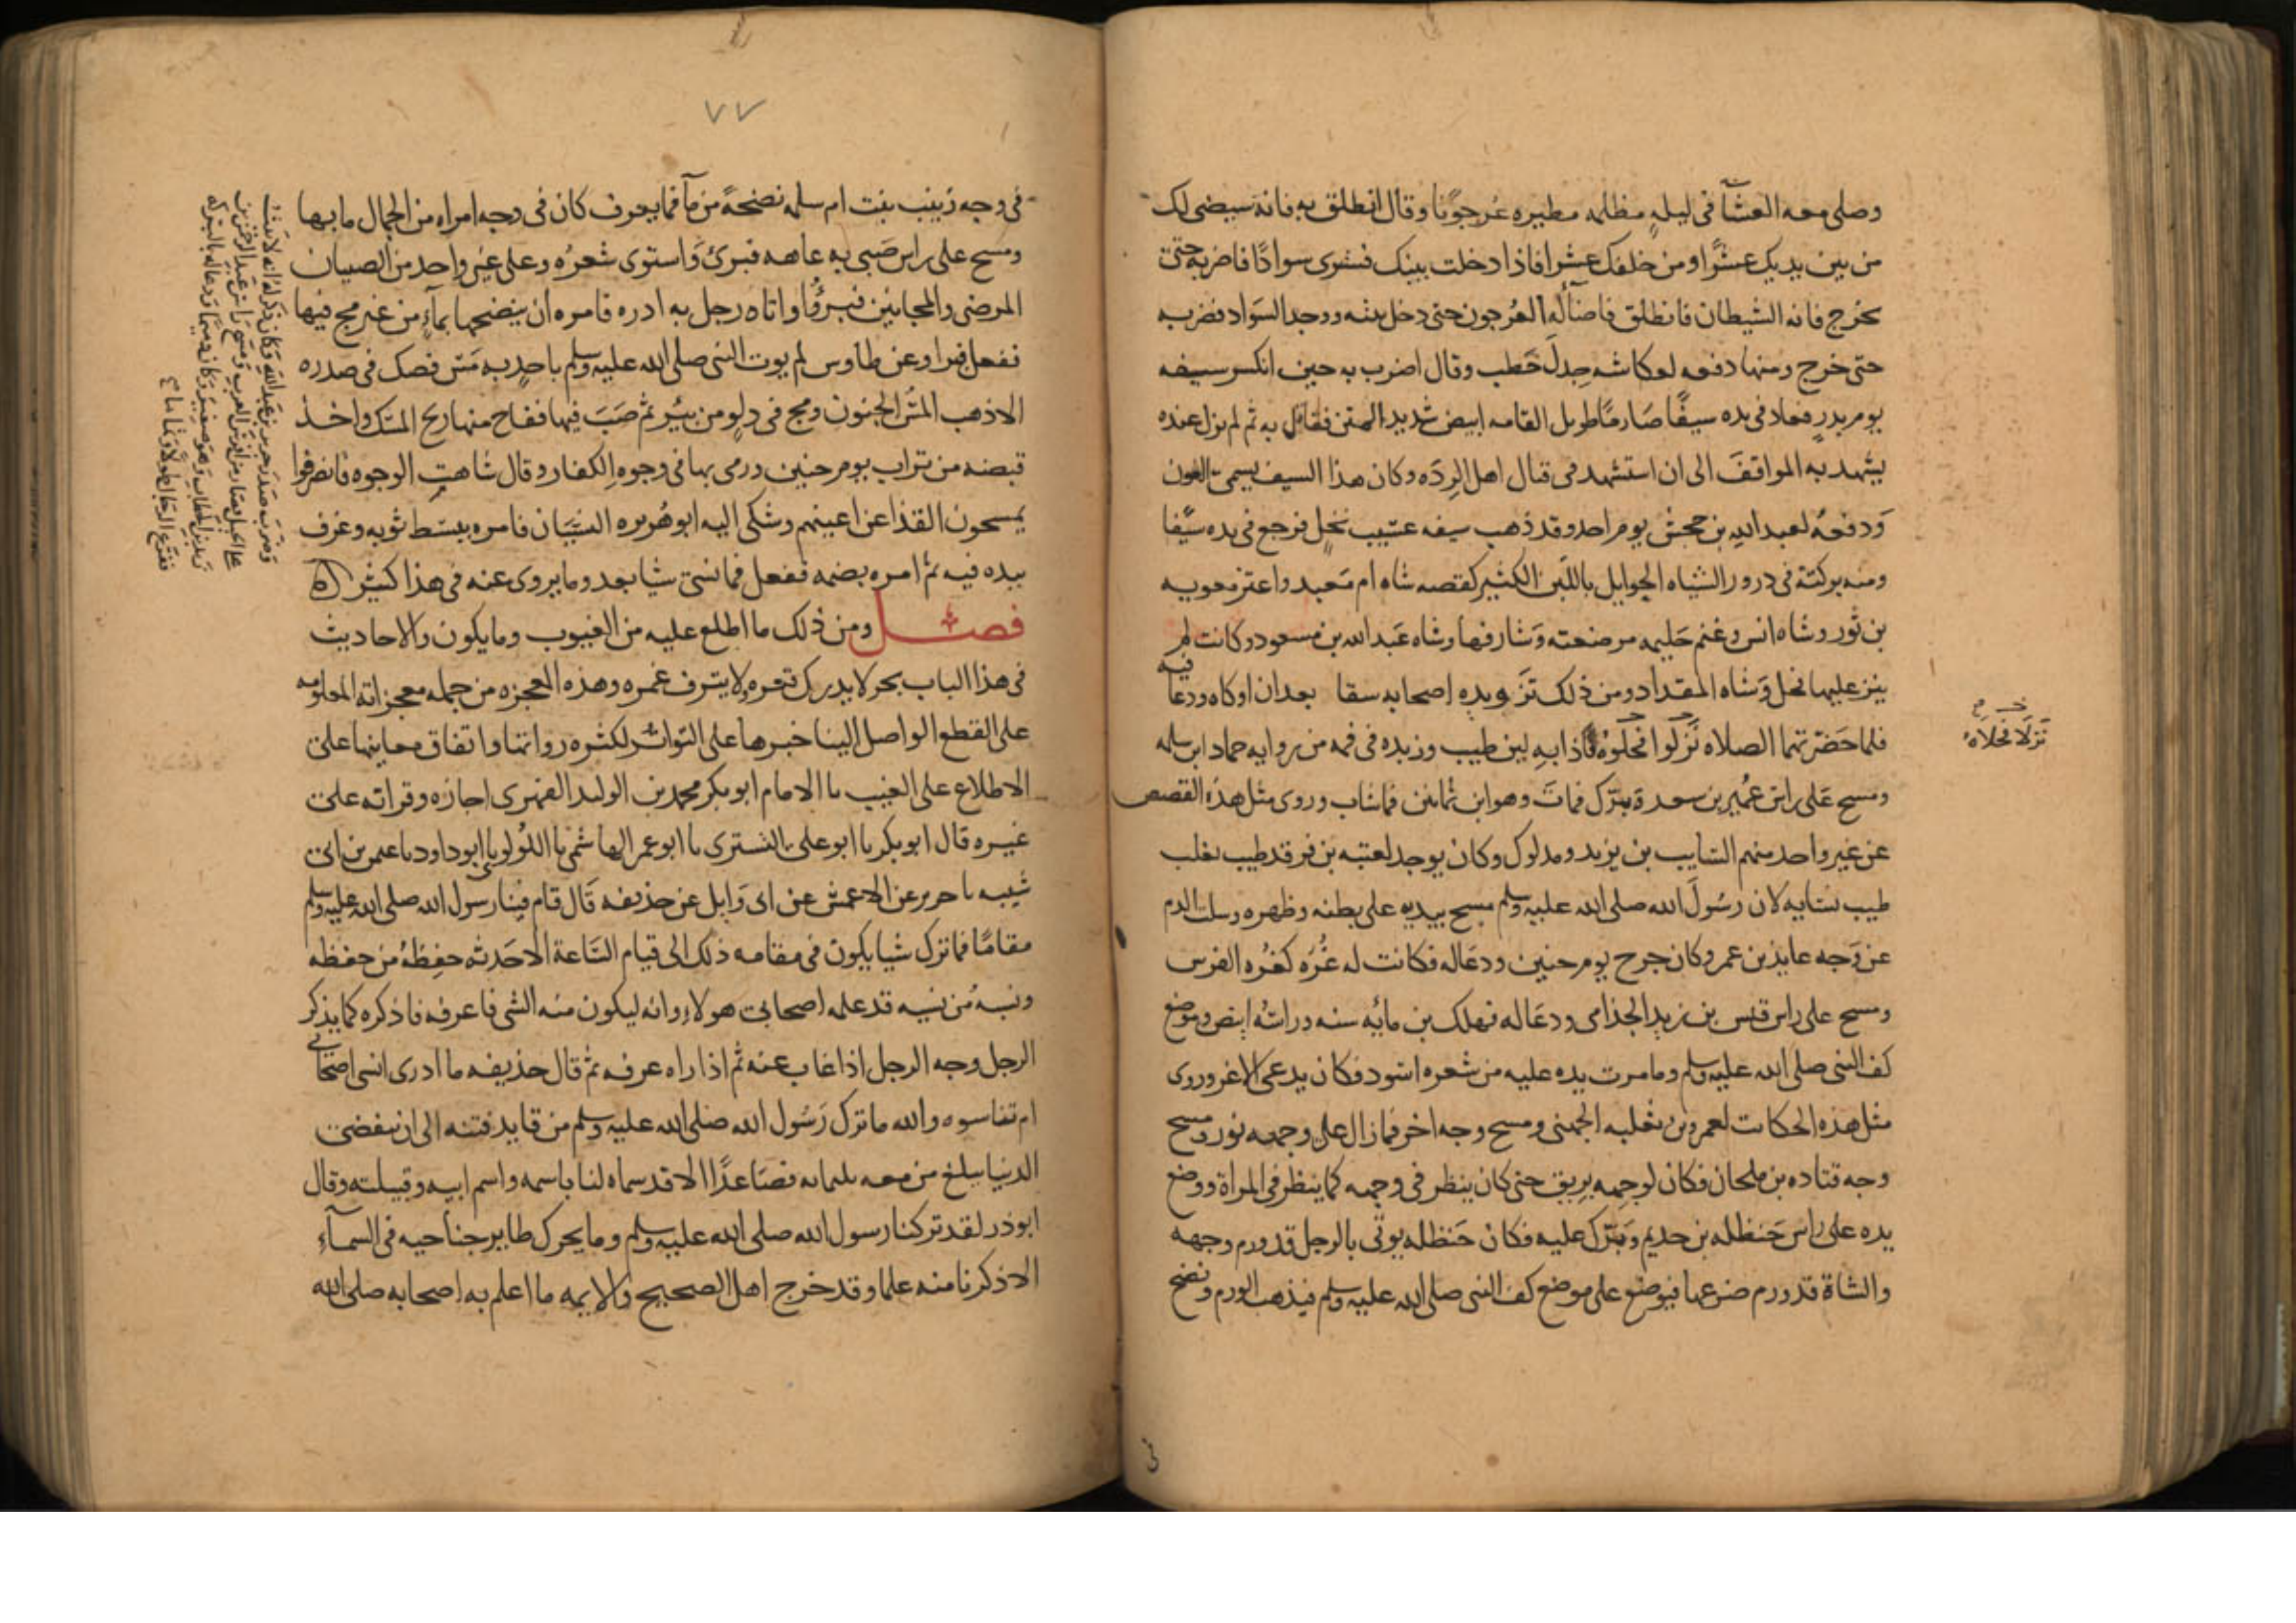 وصلى معه العشآ فى ليلةٍ مظلمه مطيره عُرجونًا وقال انطلق به فانه سيضى لك
من بين يديك عشرًا ومن خلفك عشرا فاذا دخلت بيتك فسترى سوادًا فاضربه حتى
يخرج فانه الشيطان فانطلق فاضآ له العُرجون حتى دخل بيته ووجد السواد فضربه
حتى خرج ومنها دفعه لعكاشه جِدلَ حَطب وقال اضرب به حين انكسر سيفه
يوم بدرٍ فعاد فى يده سيفًا صَارمًا طويل القامه ابيض شديد المتن فقاتل به ثم لم يزل عنده
يشهد به المواقفَ الى ان استشهد فى قتال اهل الرِدَه وكان هذا السيف يسمى العون
وَدفعهُ لعبد الله بن جحش يوم احد وقد ذهب سيفه عسيب نخلٍ فرجع فى يده سيفًا
ومنه بركته فى درور الشياه الحوايل باللبن الكثير كقصه شاه ام مَعبد واعنز معويه
بن ثور وشاه انس وغنم حَليمه مرضعته وَشارفها وشاه عَبد الله بن مسعود وكانت لم
ينز عليها فحل وَشاه المقداد ومن ذلك تَزويده اصحابه سقا بعد ان اوكاه ودعا فيه
فلما حَضرتهما الصلاه نَزلوا فحَلوُه فاذا به لبن طيب وزبده فى فمه من روايه حماد ابن سلمه
ومسح عَلى راس عُمير بن سعد وَبَرّك فماتَ وهو ابن ثمانين فما شاب وروى مثل هذه القصص
عن غير واحد منهم السايب بن يزيد ومدلوك وكان يوجد لعتبه بن فرقد طيب يغلب
طيب نسايه لان رسُولَ الله صلى الله عليه وسلم مسح بيديه على بطنه وظهره وسلت الدم
عن وَجه عايذ بن عمرو كان جرح يوم حنين ودعَا له فكانت له غُرَه كغُره الفرس
ومسح على راس قيس بن زيد الجذامى ودعَا له فهلك بن مائه سنه وراسُه ابيض وموضع
كف النبى صلى الله عليه وسلم وما مرت يده عليه من شعره اسود فكان يدعى الاغر وروى
مثل هذه الحكايت لعمرو بن ثعلبه الجهنى ومسح وجه اخر فما زال على وجهه نور ومسح
وجه قتاده بن ملحان فكان لوجهه بريق حتى كان ينظر فى وجهه كما ينظر فى المراة ووضع
يده على راس حَنظله بن حذيم وَبَرّك عليه فكان حَنظله يوتى بالرجل قد ورم وجهه
والشاة قد ورم ضرعها فيوضع على موضع كف النبى صلى الله عليه وسلم فيذهب الورم ونضح
نَزلَا فحَلاهُ
فى
٧٧
فى وجه زينب بنت ام سلمه نضحةً من مآ فما يعرف كان فى وجه امراه من الجمال ما بها
ومسح على راس صَبى به عاهه فبرئ وَاستوى شعرُه وعلى غير واحد من الصبيان
المرضى والمجانين فبرؤُا واتاه رجل به ادره فامره ان ينضحها بمآءٍ من عين مج فيها
ففعل فبرا وعن طاوس لم يوت النبى صلى الله عليه وسلم باحدٍ به مَس فصك فى صدره
الا ذهب المسُّ الجنون ومج فى دلوٍ من بيرٍ ثم صَبَ فيها ففاح منها ريح المسك واخذ
قبضه من تراب يوم حنين ورمى بها فى وجوه الكفار وقال شاهتِ الوجوه فانصرفوا
يمسحون القذا عن اعينهم وشكى اليه ابو هُريره النسيَان فامره ببسط ثوبه وغرف
بيده فيه ثم امره بضمه ففعل فما نسى شيا بعد وما يروى عنه فى هذا كثير
فصل ومن ذلك ما اطلع عليه من الغيوب وما يكون والاحاديث
فى هذا الباب بحر لا يدرك قعره ولا ينزف غمره وهذه المعجزه من جمله معجزاته المعلومه
على القطع الواصل الينا خبرها على التواتر لكثره رواتها واتفاق معانيها على
الاطلاع على الغيب نا الامام ابو بكر محمد بن الوليد الفهرى اجازه وقراته على
غيره قال ابو بكر نا ابو على التسترى نا ابو عمر الهاشمى نا اللولوى نا ابو داود نا عثمن بن ابى
شيبه نا جرير عن الاعمش عن ابى وَايل عن حذيفه قَال قام فينا رسول الله صلى الله عليه وسلم
مقامًا فما ترك شيا يكون فى مقامه ذلك الى قيام السَاعة الا حَدثه حفِظهُ من حفظه
ونسيهُ من نسيه قد علمه اصحابى هولاء وانه ليكون منه الشى فاعرفه فاذكره كما يذكر
الرجل وجه الرجل اذا غاب عنه ثم اذا راه عرفه ثم قال حذيفه ما ادرى انسى اصحابى
ام تناسوه والله ما ترك رَسُول الله صلى الله عليه وسلم من قايد فتنه الى ان تنقضى
الدنيا يبلغ من معه ثلثمايه فصَاعدًا الا قد سماه لنا باسمه واسم ابيه وقبيلته وقال
ابو ذر لقد تركنا رسول الله صلى الله عليه وسلم وما يحرك طاير جناحيه فى السمآء
الا ذكرنا منه علما وقد خرج اهل الصحيح والايمه ما اعلم به اصحابه صلى الله
وَضربَ صَدرَ جرير بن عَبد الله وَكان ذكر له انه لا يثبت
على الخيل فصَار من افرس العرب وَمسح راس عَبد الرحمن بن
زيد بن الخطاب وَهو صَغير وَكان دميمًا وَدعا له بالبركه
ففرع الرجال طولا وتماما